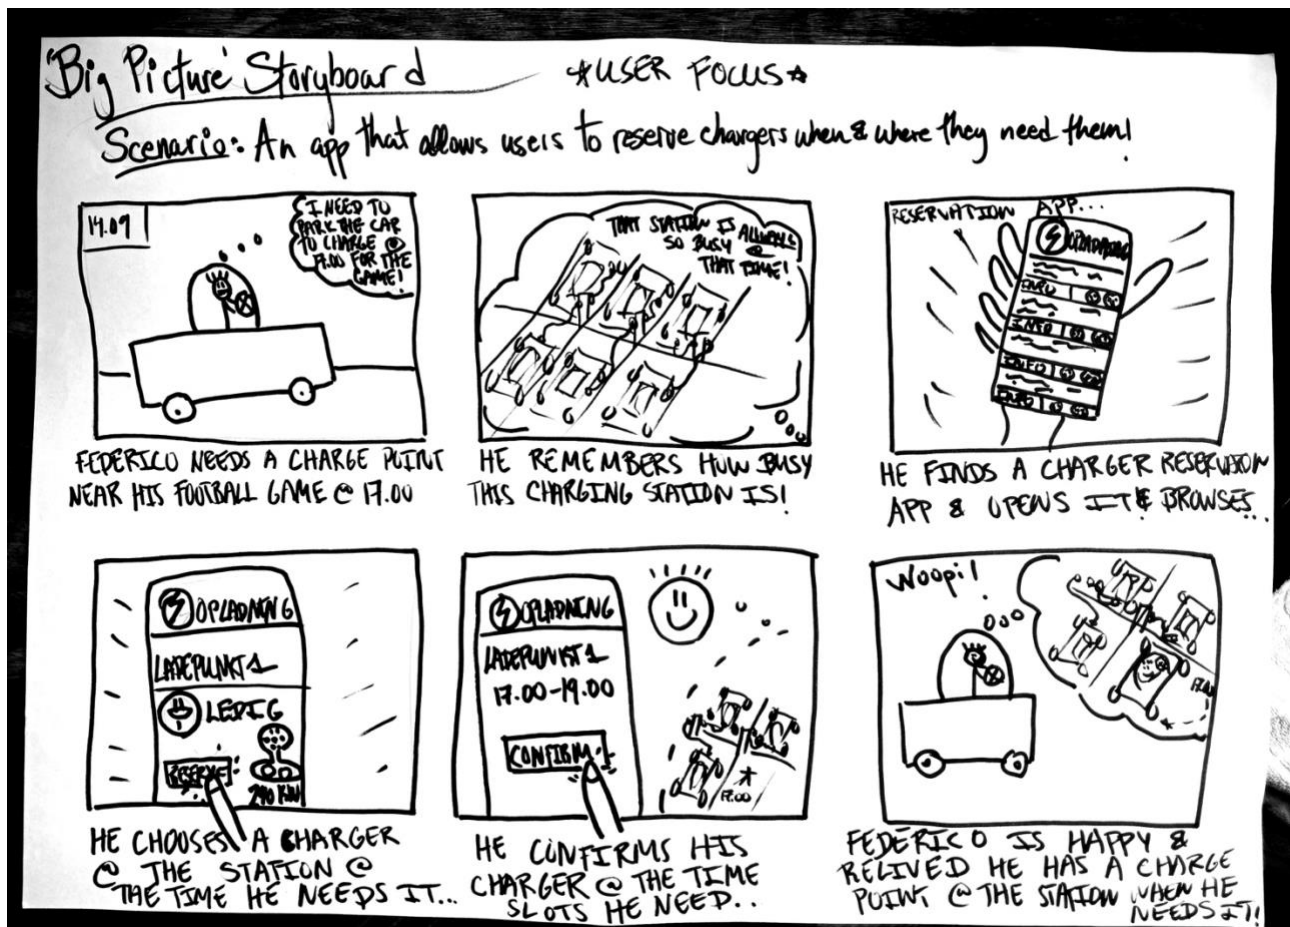 'Big Picture' Storyboard
☆USER FOCUS☆
Scenario: An app that allows users to reserve chargers when & where they need them!
14.09
I NEED TO
PARK THE CAR
TO CHARGE @
17.00 FOR THE
GAME!
FEDERICO NEEDS A CHARGE POINT
NEAR HIS FOOTBALL GAME @ 17.00
THAT STATION IS
SO BUSY @
THAT TIME!
HE REMEMBERS HOW BUSY
THIS CHARGING STATION IS!
RESERVATION APP...
OPLADNING
INFO
INFO
INFO
INFO
HE FINDS A CHARGER RESERVATION
APP & OPENS IT & BROWSES...
OPLADNING
LADEPUNKT 1
LEDIG
RESERVE
240 KW
HE CHOOSES A CHARGER
@ THE STATION @
THE TIME HE NEEDS IT...
OPLADNING
LADEPUNKT 1
17.00-19.00
CONFIRM
17.00
HE CONFIRMS HIS
CHARGER @ THE TIME
SLOTS HE NEED..
Woopi!
17.00
FEDERICO IS HAPPY &
RELIVED HE HAS A CHARGE
POINT @ THE STATION WHEN HE
NEEDS IT!